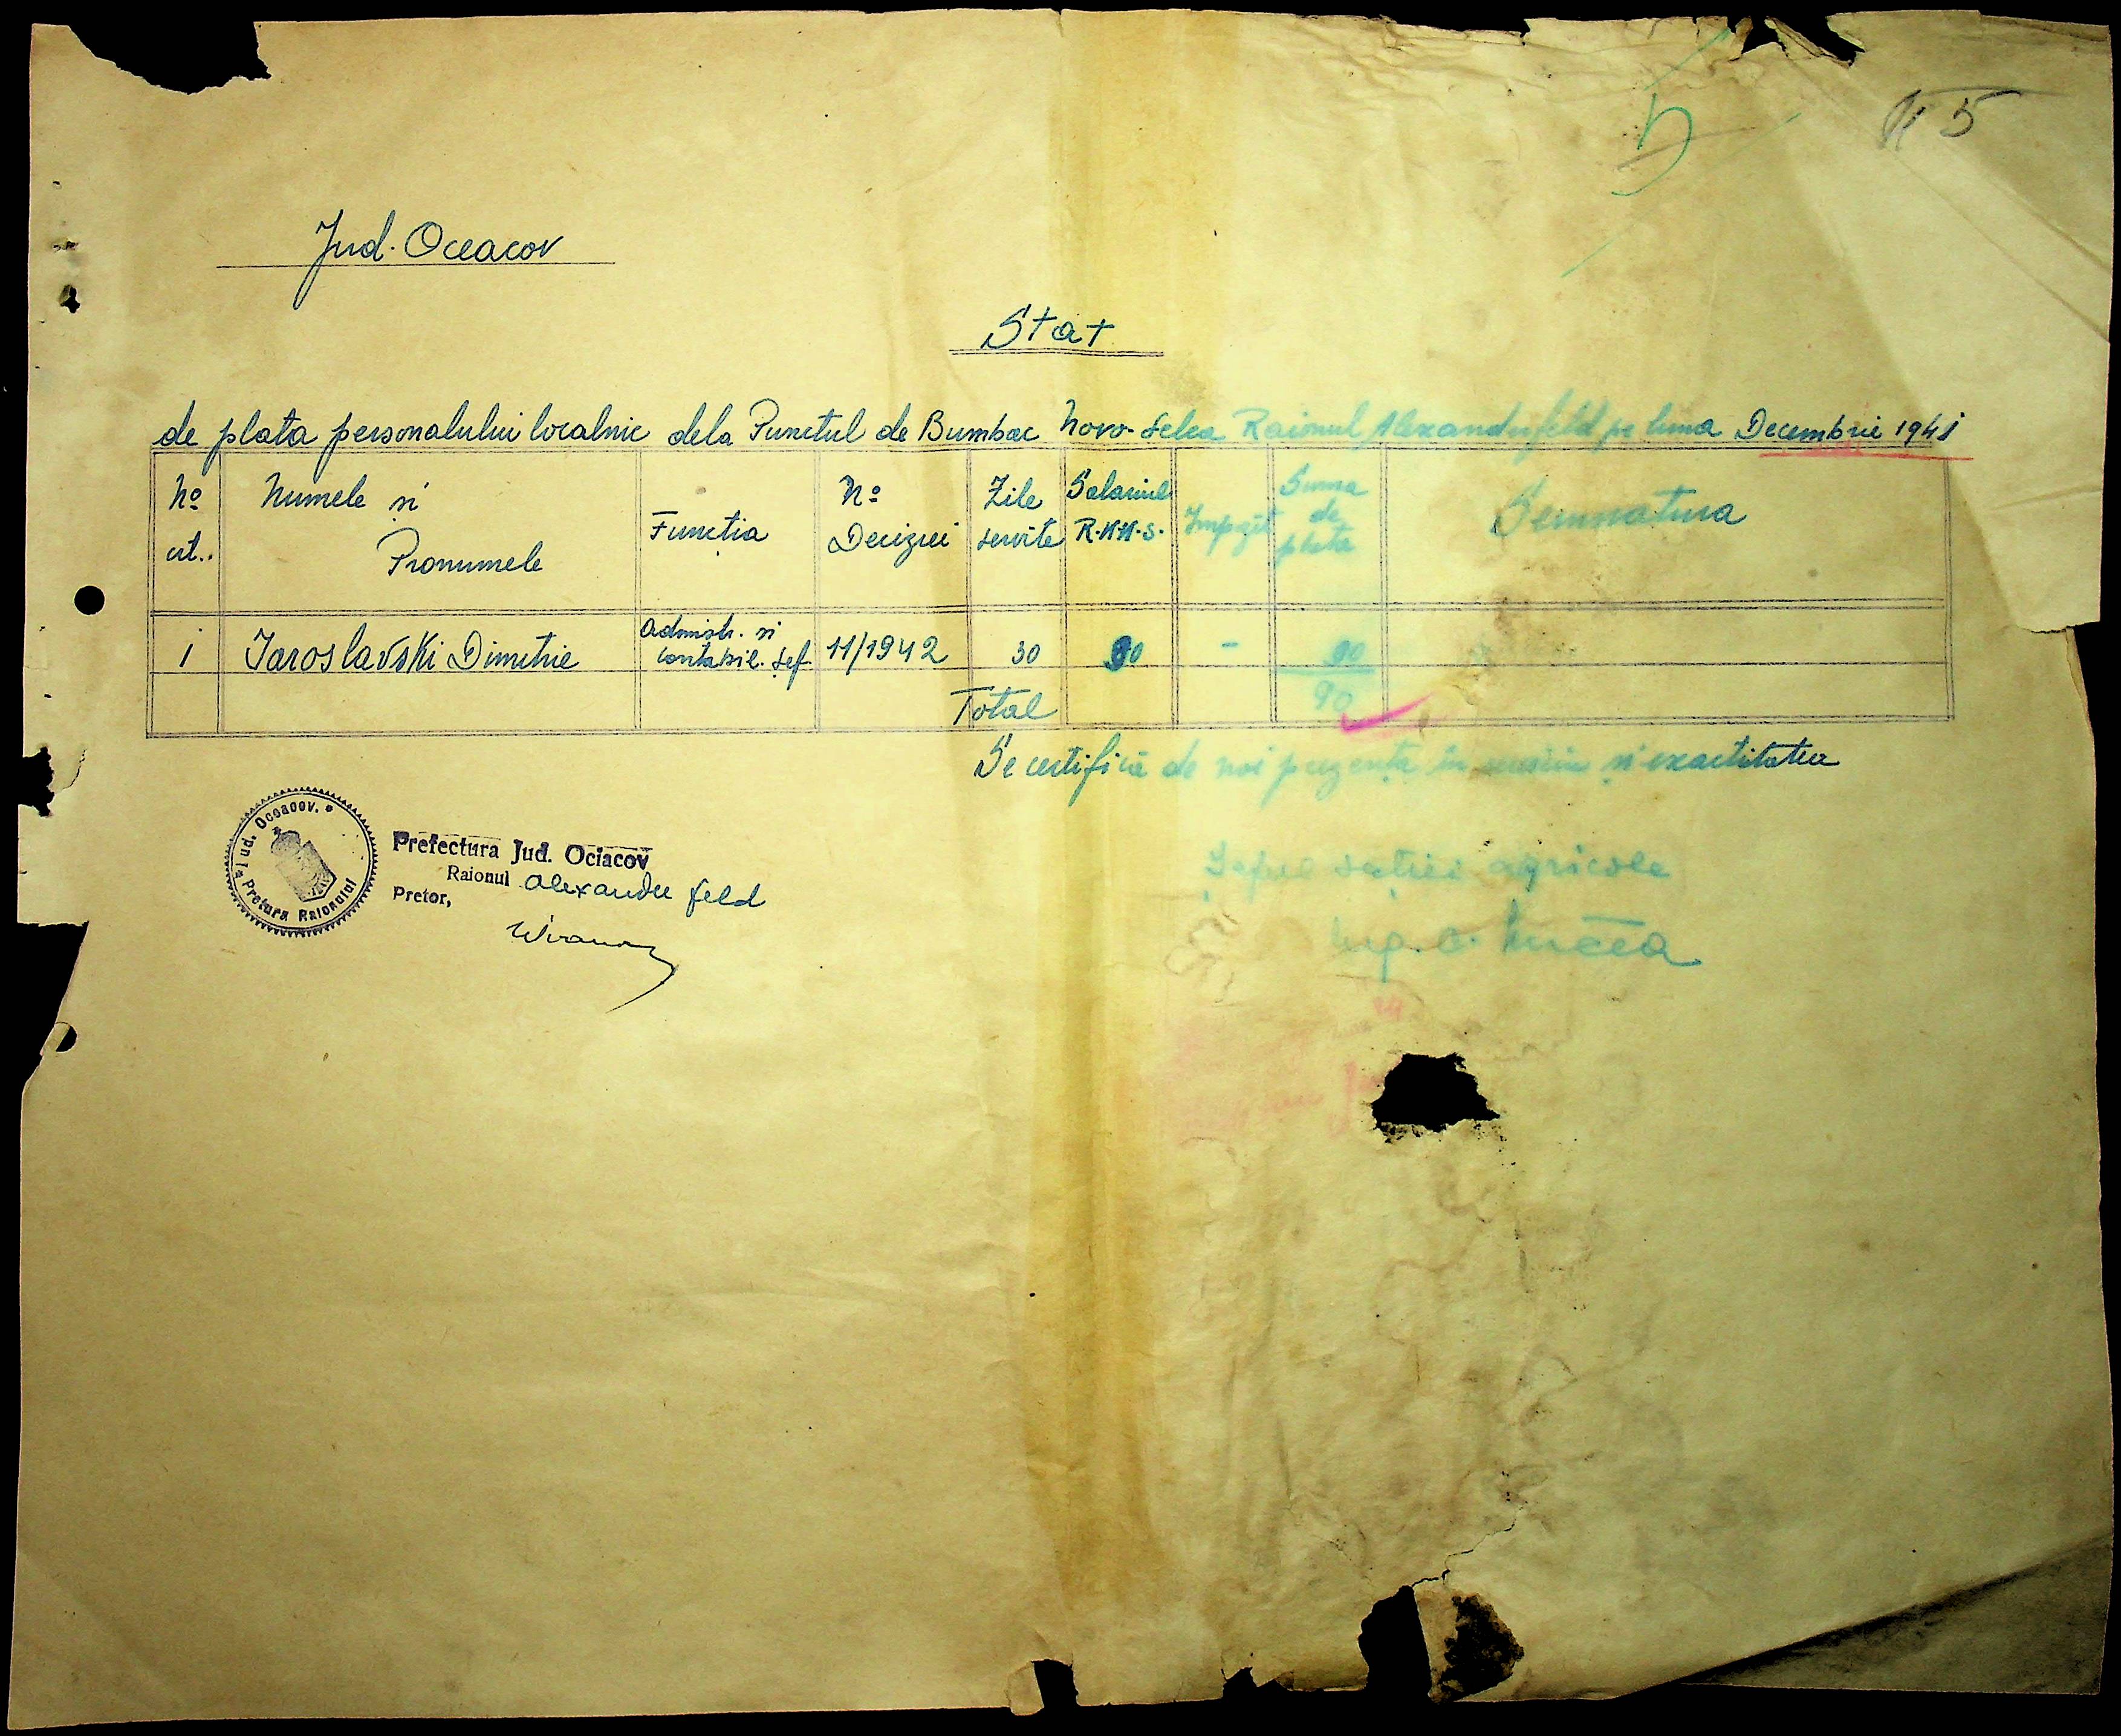 5
5
Jud. Oceacov
Stat
de plata personalului localnic dela Punctul de Bumbac Novo-Selca Raionul Alexanderfeld pe luna Decembrie 1941
No crt. Numele si Pronumele Functia No Deciziei Zile servite Salariul R.K.K.S. Impozit Suma de plata Semnatura
1 Iaroslavski Dimitrie Admistr. si contabil. șef 11/1942 30 90 - 90
Total 90
Se certifică de noi prezența în serviciu și exactitatea
Jud. Oceacov. * Pretura Raionului
Prefectura Jud. Ociacov
Raionul Alexander feld
Pretor,
Șeful secției agricole
Ing. C. Mircea